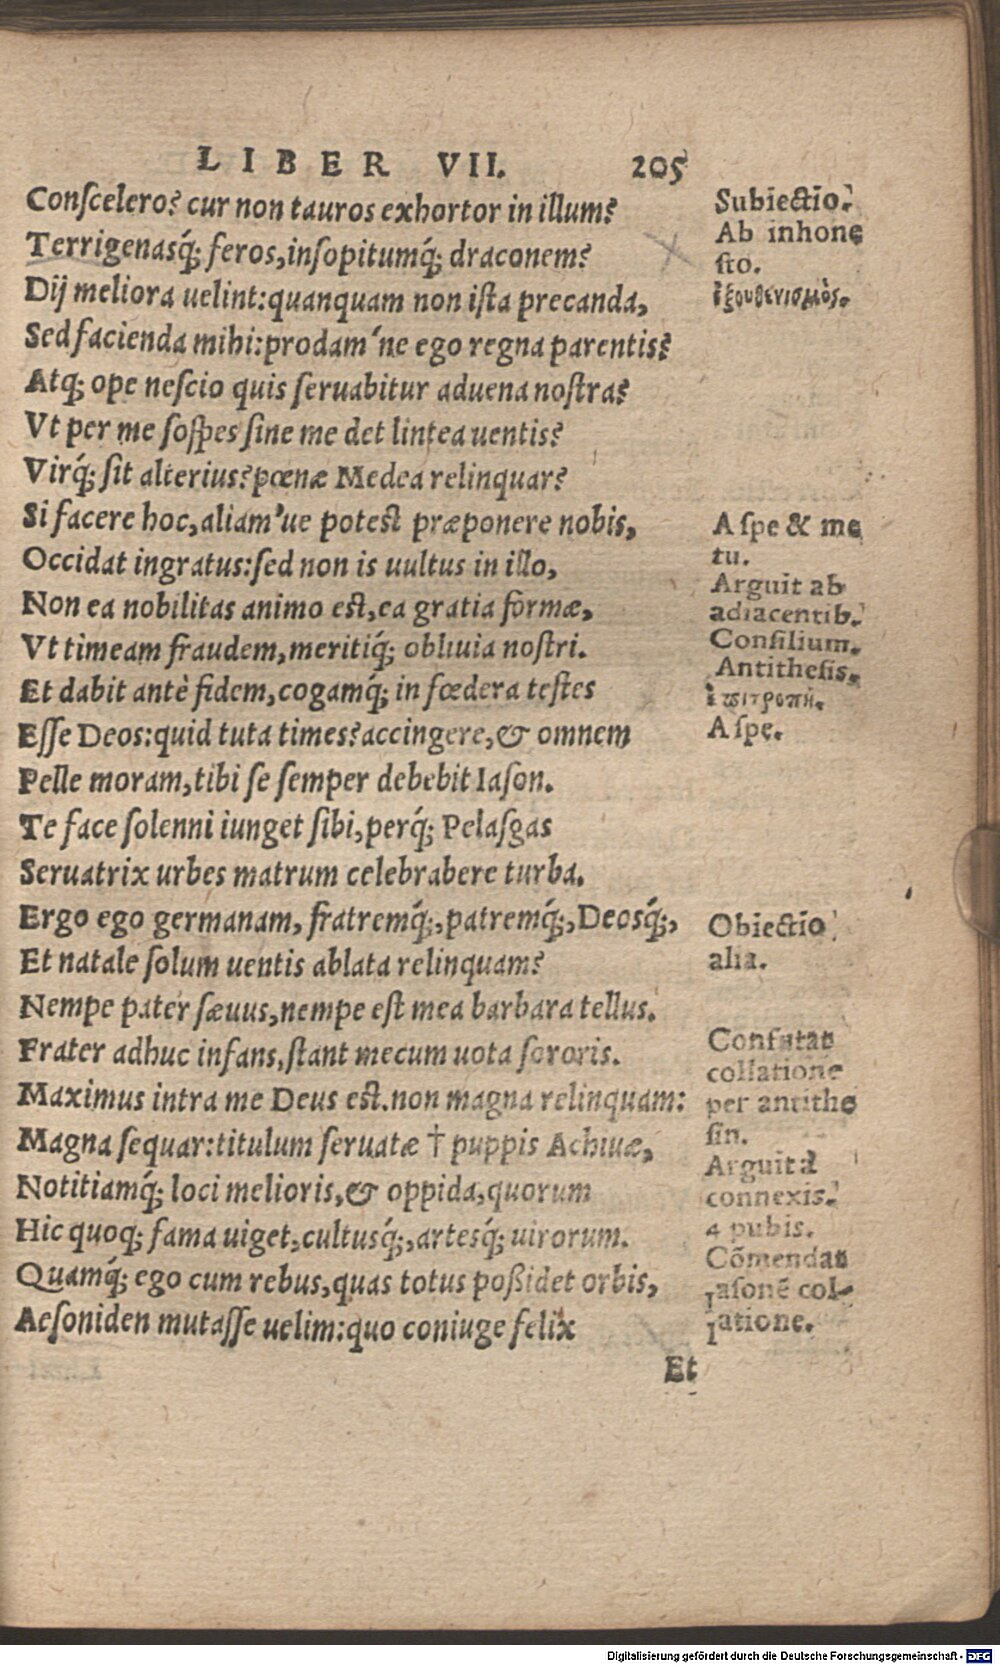 LIBER VII. 205
Conſcelero? cur non tauros exhortor in illum?
Terrigenasq́; feros, inſopitumq́; draconem?
Dij meliora uelint: quanquam non iſta precanda,
Sed facienda mihi: prodam'ne ego regna parentis?
Atq; ope neſcio quis ſeruabitur aduena noſtra?
Vt per me ſoſpes ſine me det lintea uentis?
Virq́; ſit alterius? pœnæ Medea relinquar?
Si facere hoc, aliam'ue poteſt præponere nobis,
Occidat ingratus: ſed non is uultus in illo,
Non ea nobilitas animo eſt, ea gratia formæ,
Vt timeam fraudem, meritiq́; obliuia noſtri.
Et dabit antè fidem, cogamq́; in fœdera teſtes
Eſſe Deos: quid tuta times? accingere, & omnem
Pelle moram, tibi ſe ſemper debebit Iaſon.
Te face ſolenni iunget ſibi, perq́; Pelaſgas
Seruatrix urbes matrum celebrabere turba.
Ergo ego germanam, fratremq́;, patremq́;, Deosq́;,
Et natale ſolum uentis ablata relinquam?
Nempe pater ſæuus, nempe eſt mea barbara tellus.
Frater adhuc infans, ſtant mecum uota ſororis.
Maximus intra me Deus eſt. non magna relinquam:
Magna ſequar: titulum ſeruatæ † puppis Achiuæ,
Notitiamq́; loci melioris, & oppida, quorum
Hic quoq; fama uiget, cultusq́;, artesq́; uirorum.
Quamq́; ego cum rebus, quas totus poßidet orbis,
Aeſoniden mutaſſe uelim: quo coniuge felix
Et
Subiectio.
Ab inhone
ſto.
ἐξουθενισμὸς.
A ſpe & me
tu.
Arguit ab
adiacentib.
Conſilium.
Antitheſis.
ἐπιτροπή.
A ſpe.
Obiectio
alia.
Confutat
collatione
per antithe
ſin.
Arguit à
connexis.
4 pubis.
Cōmendat
Iaſonē col-
latione.
Digitalisierung gefördert durch die Deutsche Forschungsgemeinschaft - DFG